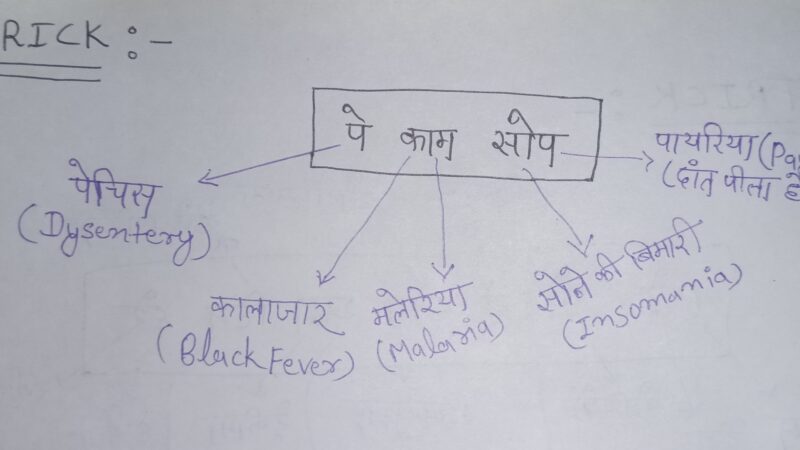 RICK :-
पे काम सोप
पेचिस
(Dysentery)
कालाजार
(Black Fever)
मलेरिया
(Malaria)
सोने की बिमारी
(Insomania)
पायरिया
(दांत पीला